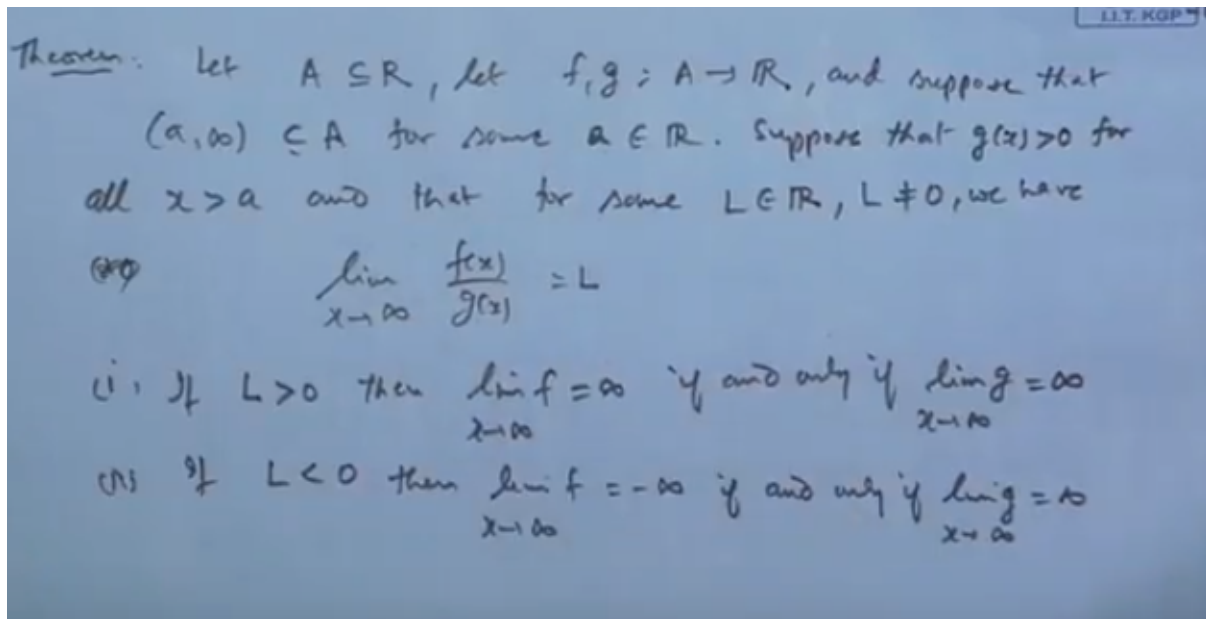 I.I.T. KGP
Theorem. Let A ⊆ R, let f, g : A → ℝ, and suppose that
(a, ∞) ⊆ A for some a ∈ ℝ. Suppose that g(x) > 0 for
all x > a and that for some L ∈ ℝ, L ≠ 0, we have
lim x→∞ f(x)/g(x) = L
(i) If L > 0 then lim x→∞ f = ∞ if and only if lim x→∞ g = ∞
(ii) If L < 0 then lim x→∞ f = -∞ if and only if lim x→∞ g = ∞